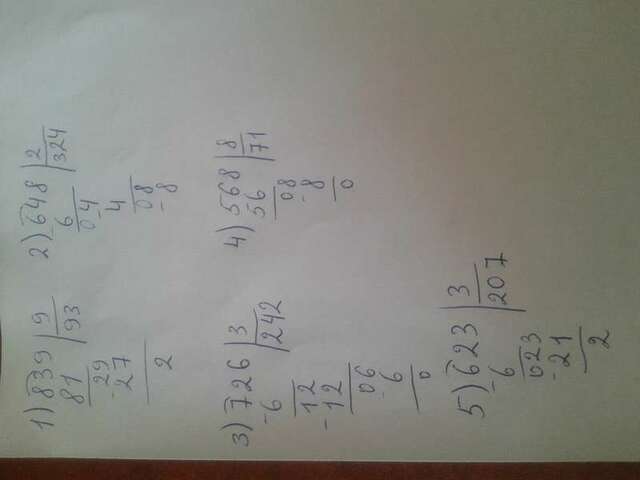 1) 839 | 9
81 | 93
- 29
27
2
2) 648 | 2
- 6 | 324
04
- 4
08
- 8
3) 726 | 3
- 6 | 242
12
- 12
06
- 6
0
4) 568 | 8
56 | 71
08
- 8
0
5) 623 | 3
- 6 | 207
023
- 21
2